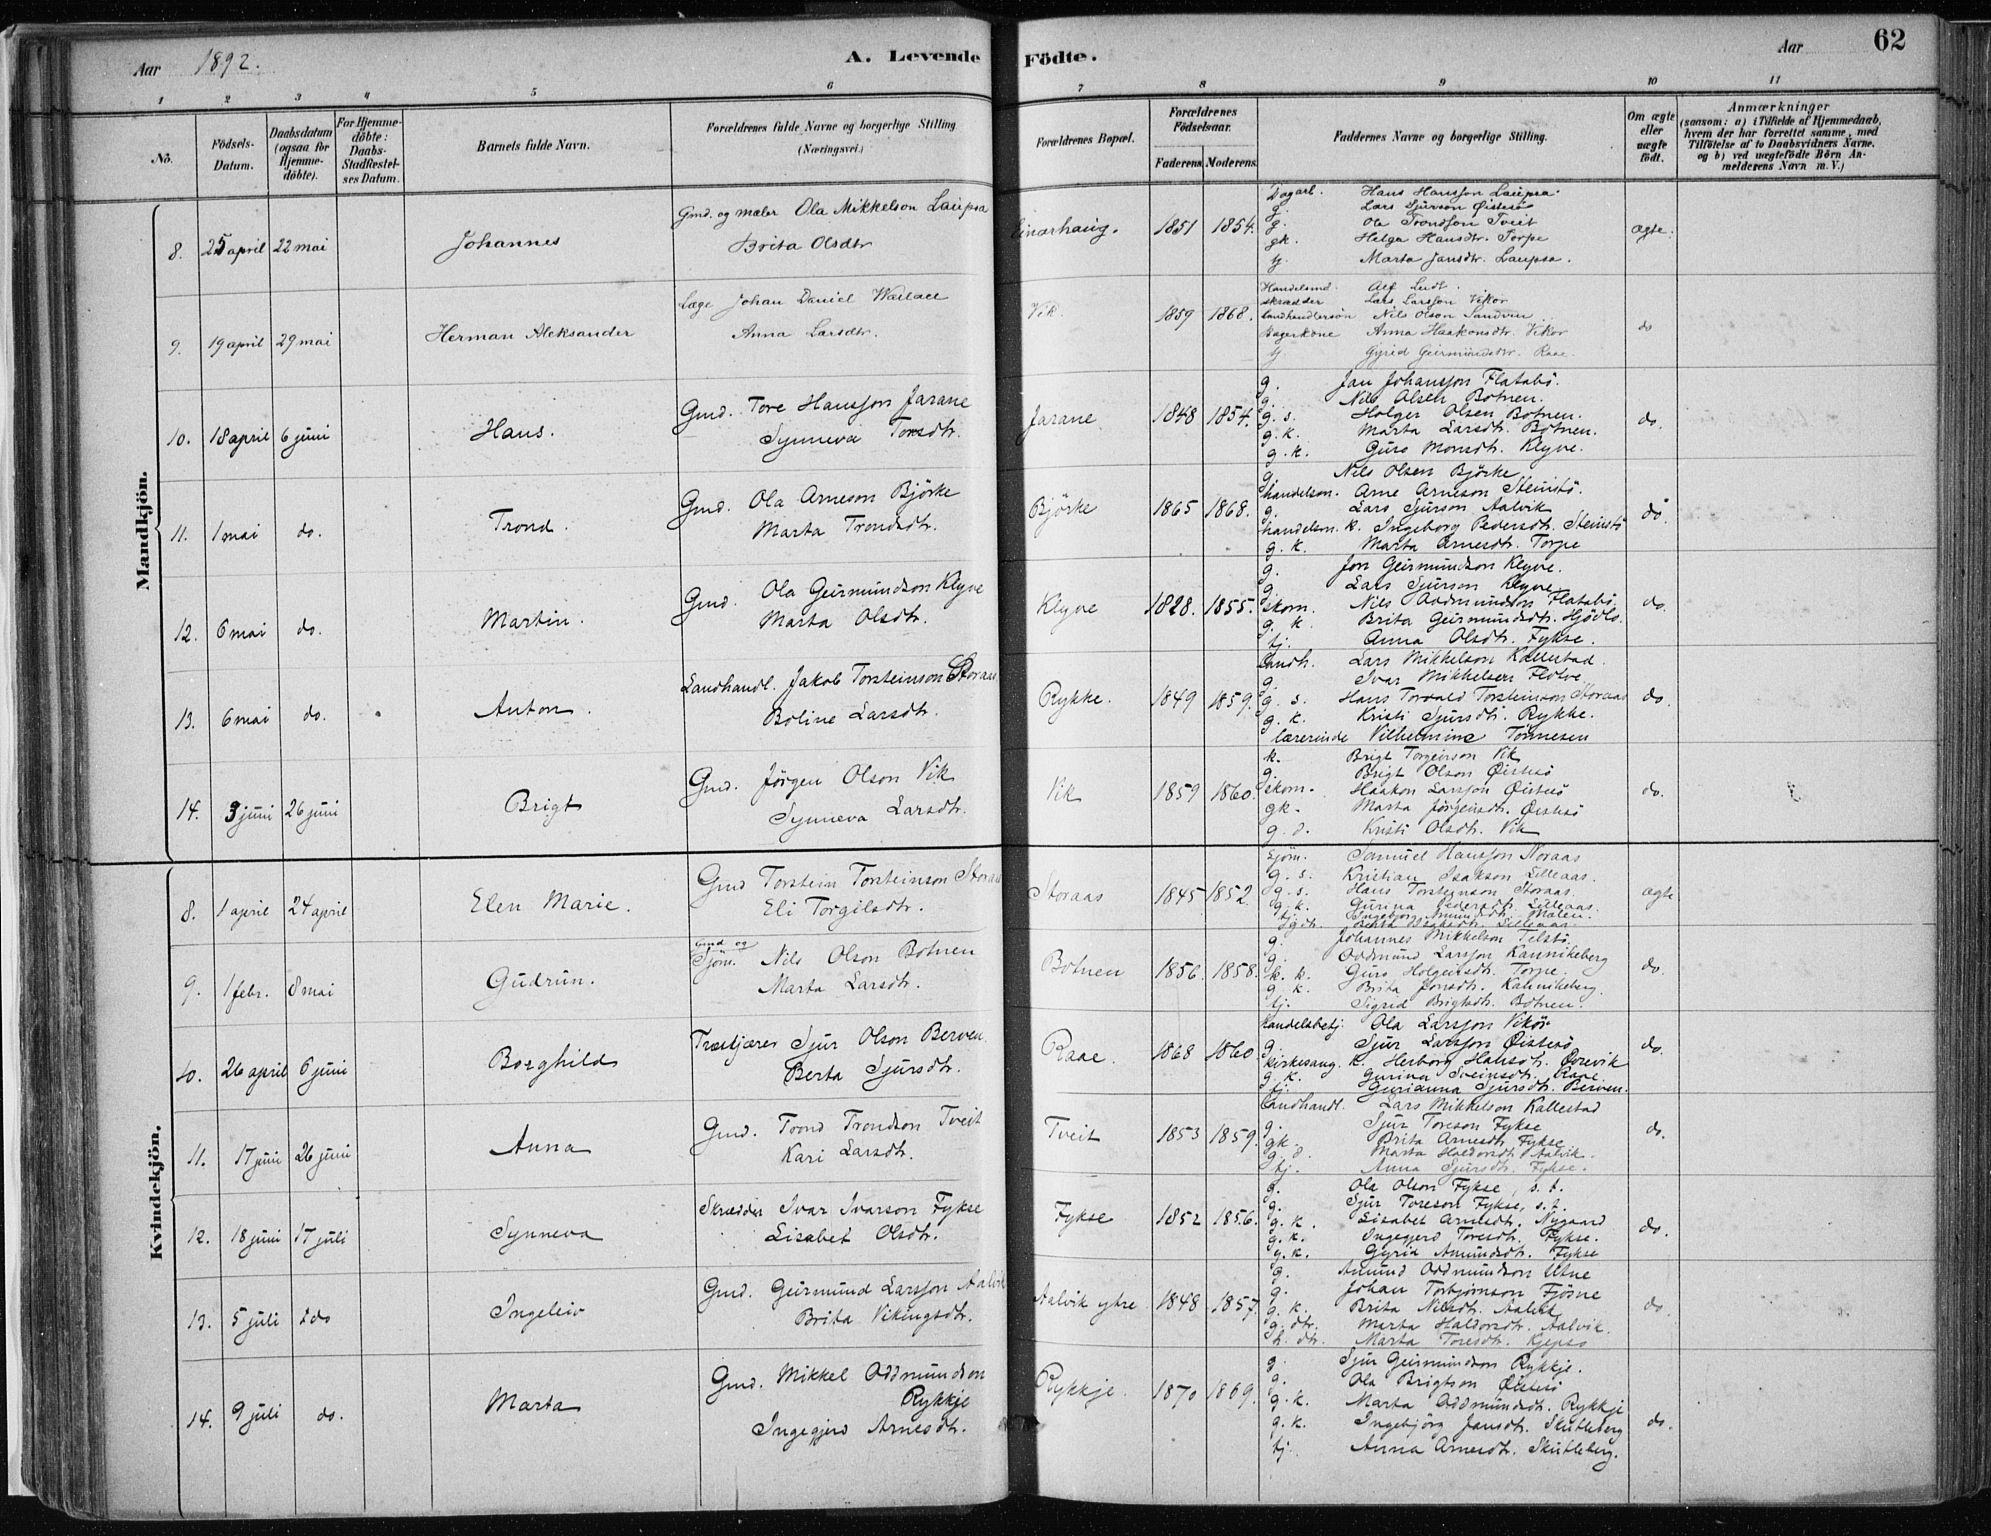 Aar 1892. A. Levende Födte. Aar 62
1 2 3 4 5 6 7 8 9 10 11
No. Födsels-Datum. Daabsdatum (ogsaa for Hjemmedöbte). For Hjemmedöbte: Daabs-Stadfæstelses Datum. Barnets fulde Navn. Forældrenes fulde Navne og borgerlige Stilling (Næringsvei.) Forældrenes Bopæl. Forældrenes Födselsaar. Faderens. Moderens. Faddernes Navne og borgerlige Stilling. Om ægte eller uægte födt. Anmærkninger (saasom: a) i Tilfælde af Hjemmedaab, hvem der har forrettet samme, med Tilföielse af to Daabsvidners Navne. og b) ved uægtefödte Börn Anmelderens Navn m. V.)
Mandkjön.
8. 25 april 22 mai Johannes Gmd. og maler Ola Mikkelson Laupsa Einarhaug. 1851 1854. Dagarb. Hans Hansson Laupsa. ægte.
Brita Olsdtr
g. Lars Sjurson Øistesö
g. Ole Trondson Tveit
gk. Helga Hansdtr. Torpe
tj. Marta Jansdtr. Laupsa.
9. 19 april 29 mai Herman Aleksander Læge Johan Daniel Wallace Vik. 1859 1868. do
Anna Larsdtr.
Handelsmd.
skrædder Lars Larsson Vikör
Landhandlersön Nils Olson Sandven
Bagerkone Anna Haakonsdtr. Vikör
tj Gyrid Geirmundsdtr. Raae.
10. 18 april 6 juni Hans. Gmd. Tore Hansson Jarane Jarane 1848 1854. do.
Synneva Torsdtr.
g. Jan Johansson Flatabö.
g. Nils Olsen Botnen.
g. s. Holger Olsen Botnen.
g. k. Marta Larsdtr. Botnen.
g. k. Guro Monsdtr. Klyve.
11. 1 mai do. Trond. Gmd. Ola Arneson Björke Björke 1865 1868. do.
Marta Trondsdtr.
g. Nils Olsen Björke
handelsm. Arne Arneson Steinstö.
g. Lars Sjurson Aalvik
handelsm. k. Ingeborg Pedersdtr. Steinstö
g. k. Marta Arnesdtr. Torpe
12. 6 mai do. Martin. Gmd. Ola Geirmundson Klyve Klyve 1828. 1855. do.
Marta Olsdtr.
g. Jon Geirmundson Klyve.
g. Lars Sjurson Klyve
skom. Nils Oddmundson Flatabö
g. k. Brita Geirmundsdtr. Hjödlo.
tj. Anna Olsdtr. Fykse.
13. 6 mai do. Anton. Landhandl. Jakob Torsteinson Storaas Rykke. 1849 1859. do.
Boline Larsdtr.
Landh. Lars Mikkelson Kallestad.
g. Ivar Mikkelsen Flotve
g. s. Hans Torvald Torsteinson Storaas
g. k. Kristi Sjursdtr. Rykke.
lærerinde Vilhelmine Tönnesen
14. 3 juni 26 juni Brigt Gmd. Jörgen Olson Vik Vik 1859 1860. do.
Synneva Larsdtr.
k. Brigt Torgeirson Vik
g. Brigt Olson Øistesö
skom. Haakon Larsson Øistesö
gk. Marta Jörgensdtr. Øistesö
g. d. Kristi Olsdtr. Vik
Kvindekjön.
8. 1 april 24 april Elen Marie. Gmd Torstein Torsteinson Storaas Storaas 1845 1852. ægte
Eli Torgilsdtr.
Sjöm. Samuel Hansson Noraas
g. s. Kristian Isakson Lilleaas.
g. s. Hans Torsteinson Storaas.
g. k. Gurina Pedersdtr. Lilleaas.
tj. Ingeborg Amundsdtr. Mælen.
9. 1 febr. 8 mai Gudrun. Gmd og Sjöm. Nils Olson Botnen Botnen 1856. 1858. do.
Marta Larsdtr.
g. Johannes Mikkelson Telstö
g. Oddmund Larsson Kannikeberg
k. k. Guro Holgersdtr. Torpe
g. k. Brita Jonsdtr. Kannikeberg.
tj. Sigrid Brigtsdtr. Botnen.
10. 26 april 6 juni Borghild Træskjærer Sjur Olson Berven Raae. 1868 1860 do.
Berta Sjursdtr.
Handelsbetj. Ola Larsson Vikör
g. Sjur Larsson Øistesö
Kirkesang. k. Herborg Hansdtr. Øvrevik
g. k. Gurina Sveinsdtr. Raae
tj. Gurianna Sjursdtr. Berven.
11. 17 juni 26 juni Anna Gmd. Trond Trondson Tveit Tveit 1853 1859. do.
Kari Larsdtr.
Landhandl. Lars Mikkelson Kallestad
g. Sjur Toreson Fykse
gk. Brita Arnesdtr Fykse
g. d. Marta Haldorsdtr Aalvik.
tj. Anna Sjursdtr. Fykse.
12. 18 juni 17 juli Synneva Skrædder Ivar Ivarson Fykse Fykse 1852 1856. do.
Lisabet Olsdtr.
g. Ola Olson Fykse, s. t.
g. Sjur Toreson Fykse, s. t.
g. k. Lisabet Arnesdtr. Nygaard
g. k. Ingegjerd Toresdtr. Fykse.
g. k. Gyrid Amundsdtr. Fykse
13. 5 juli do Ingeleiv Gmd. Geirmund Larsson Aalvik Aalvik ytre 1848 1857. do.
Brita Vikingsdtr.
g. Amund Oddmundson Utne
g. Johan Torbjornson Fjösne
g. k. Brita Nilsdtr. Aalvik
g. dtr. Marta Haldorsdtr. Aalvik.
h. dtr. Marta Toresdtr. Kjepso
14. 9 juli do. Marta Gmd. Mikkel Oddmundson Rykkje Rykkje. 1870 1869. do.
Ingegjerd Arnesdtr.
g. Sjur Geirmundson Rykkje.
g. Ola Brigtson Øistesö
g. k. Marta Oddmundsdtr. Rykkje
g. k. Ingebjörg Jansdtr. Skutleberg
tj. Anna Arnesdtr. Skutleberg.